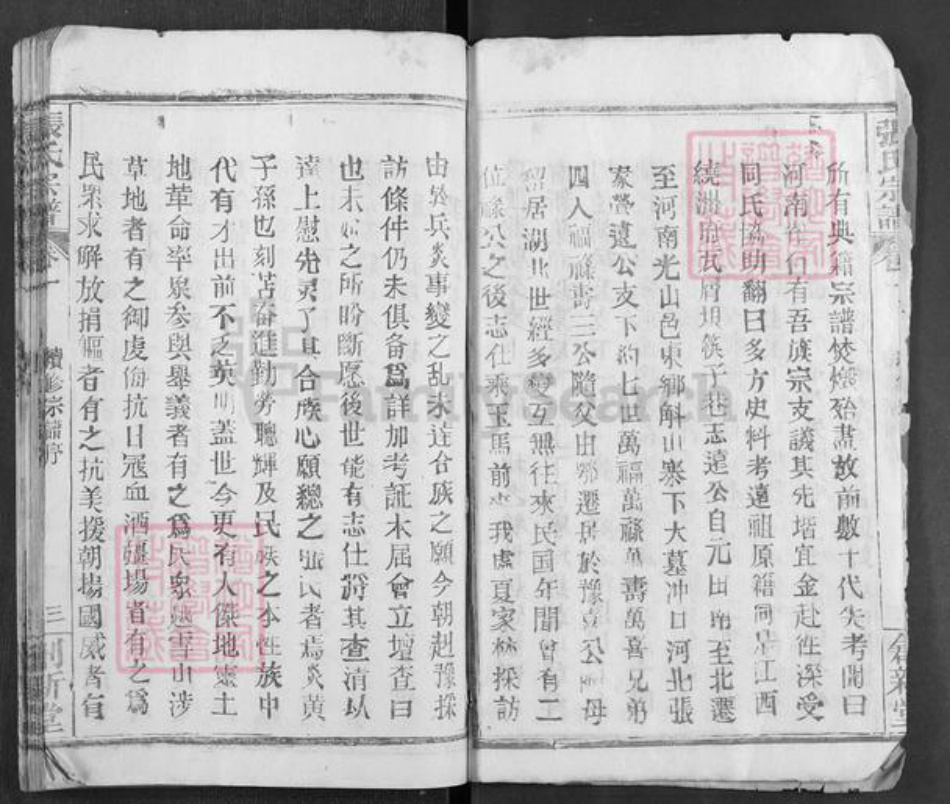 張氏宗譜
所有典籍宗譜焚燬殆盡故前數十代失考聞曰
河南 有吾族宗支議其先堦宜金赴性深受
同氏協助翻日多方史料考遠祖原籍同是江西
饒洲 瓦屑垻筷子巷志遠公自元 南至北遷
至河南光山邑東鄉斛山寨下大墓冲口河北張
家營遠公支下約七世萬福萬祿萬壽萬喜兄弟
四人福祿壽三公隨父由鄂遷居於豫 公 母
留居湖北世經多變互無往來民国年間曾有二
位祿公之後志仕乘玉馬前來我盧夏家林採訪
由於兵炎事變之乱未達合族之願今朝赴豫採
訪條件仍未俱备爲詳加考証本屆會立壇查曰
也未 之所盼斷愿後世能有志仕將其查清以
達上慰先灵了其合族心願總之張氏者焉炎黄
子孫也刻苦奋進勤劳聰輝及民族之本性族中
代有才出前不之英明蓋世今更有人傑地靈土
地革命率眾参與舉義者有之爲民衆越雪山涉
草地者有之御虜侮抗日冦血洒疆場者有之爲
民眾求解放捐軀者有之抗美援朝揚國威者有
張氏宗譜
卷一
續修宗譜序
三